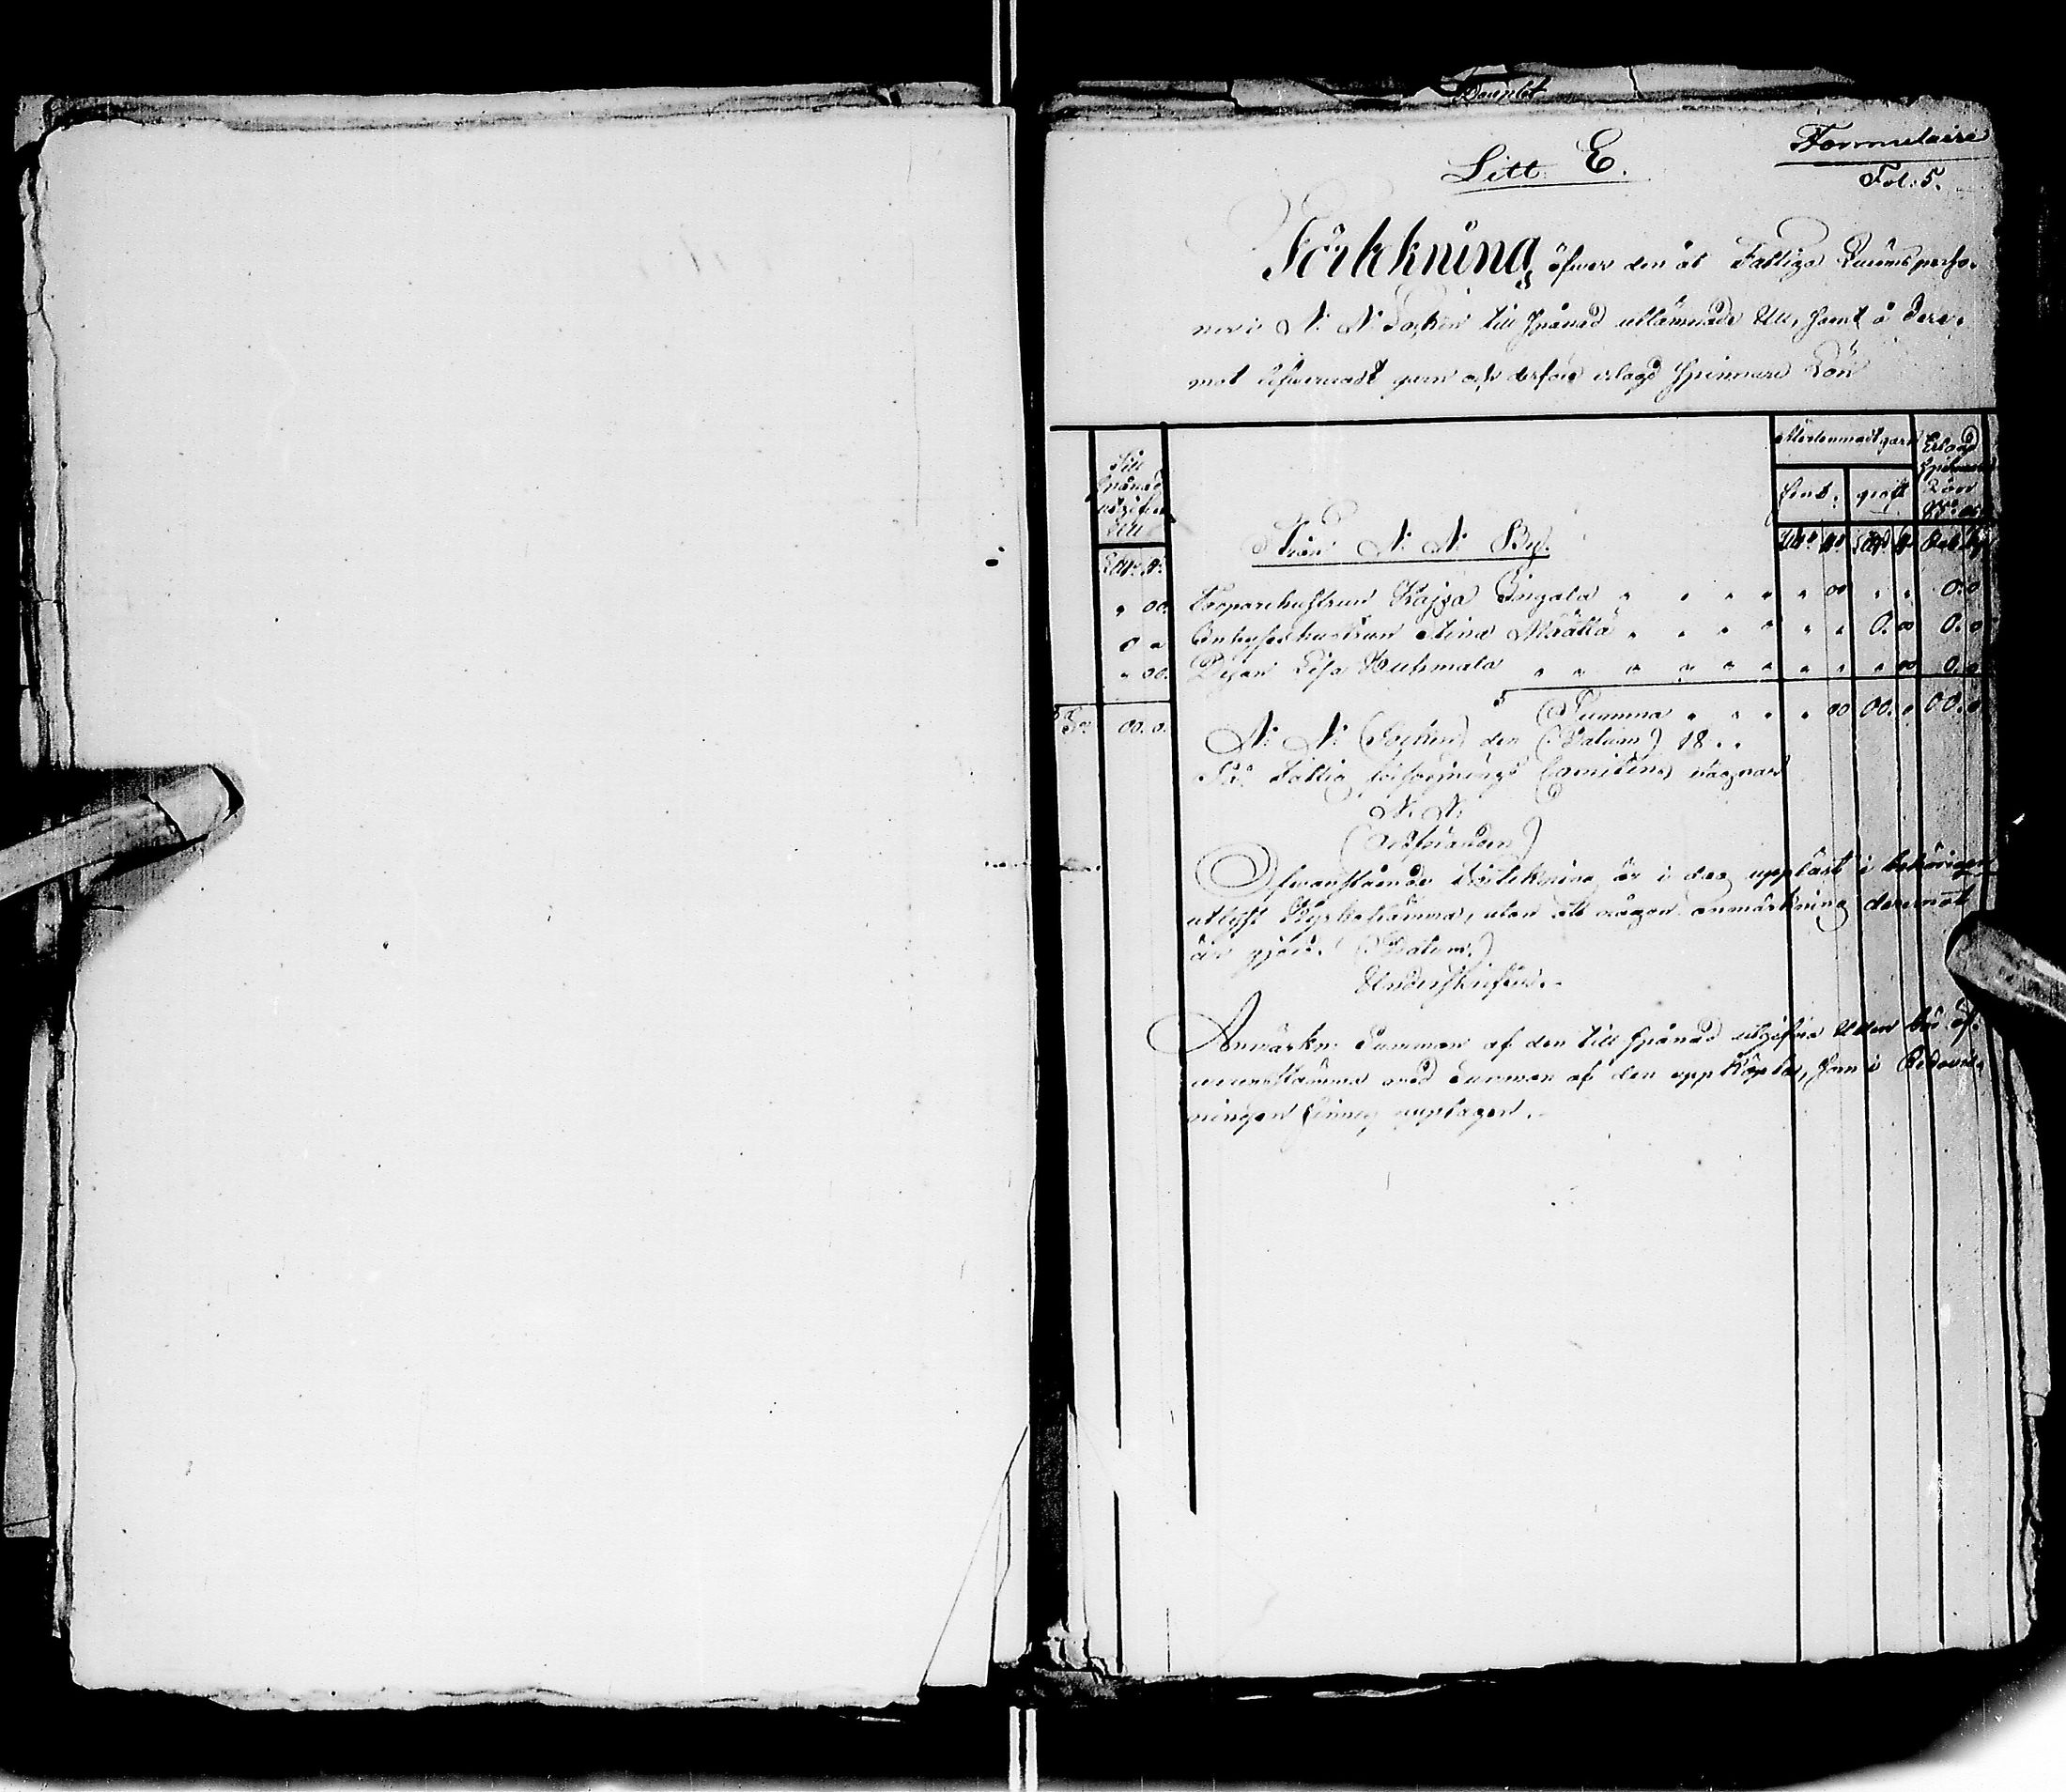 Litt. E.
Formulaire
Fol: 5.
Förtekning öfwer den åt Fattige Quinsperso-
ner i N. N. Socken till spånad utlämnade Ull, samt å dere-
mot lefwereradt garn och derföre erlagd Spinnare Lön
Till spånad utgifven Ull
Återlemnadt garn
fint. groft
Erlagd Spinnare Lön
Från N. N. By.
" 00. Torparehustrun Kajsa Pingala " " " " " 00 " " 0. 0
0 " Enkyssehustrun Stina Määttä " " " " " " 0. 00 0. 0
" 00. Pigan Lisa Huhmala " " " " " " " " " " 00 0. 0
Sa 00. 0. Summa " " " " 00 00. " 00. 0
N. N. (Socken) den (Datum) 18..
På Fattig försörjnings Comiténs wägnar
N. N.
(Ordföranden)
Ofwanstående Förtekning är i dag uppläst i behörigen
utlyst Kyrkostämma, utan att någon anmärkning deremot
är gjord. (Datum.)
Underskrifter.
Anmärkn: Summan af den till spånad utgifna Ullen bör öf-
werensstämma med Summan af den uppköpta, som i Redovis-
ningen finnes upptagen.